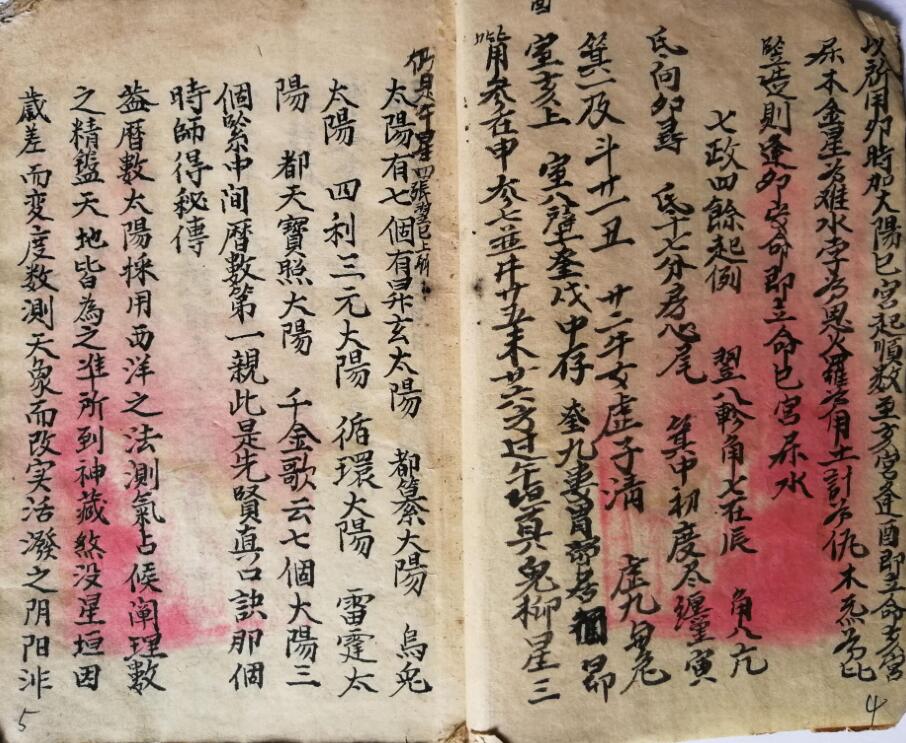 以所用卯時加太陽巳宮起順数至亥宮逢酉即立命亥宮
屬木金星為难水孛為恩火羅為用土計為仇木炁為比
豎造則逢卯安命即立命巳宮屬水
七政四餘起例 翌八軫角七在辰 角八亢
氐向卯尋 氐十七分房心尾 箕中初度尽纏寅
箕一及斗廿一丑 廿二牛女虛子淸 虛九身危
室亥上 室八壁奎戌中存 奎九婁胃 昴
觜參在申 参七並井廿五未 廿六方过午 鬼柳星三
酉
仍是午星四張翌巳上
太陽有七個有昇玄太陽 都纂太陽 烏兔
太陽 四利三元太陽 循環太陽 雷霆太
陽 都天寶照太陽 千金歌云七個太陽三
個緊中間曆數第一親此是先賢真口訣那個
時師得秘傳
葢曆數太陽採用西洋之法測氣占候阐理數
之精盤天地皆為之准所到神藏煞没星垣因
歲差而变度数測天象而改实活潑之阴阳非
4
5